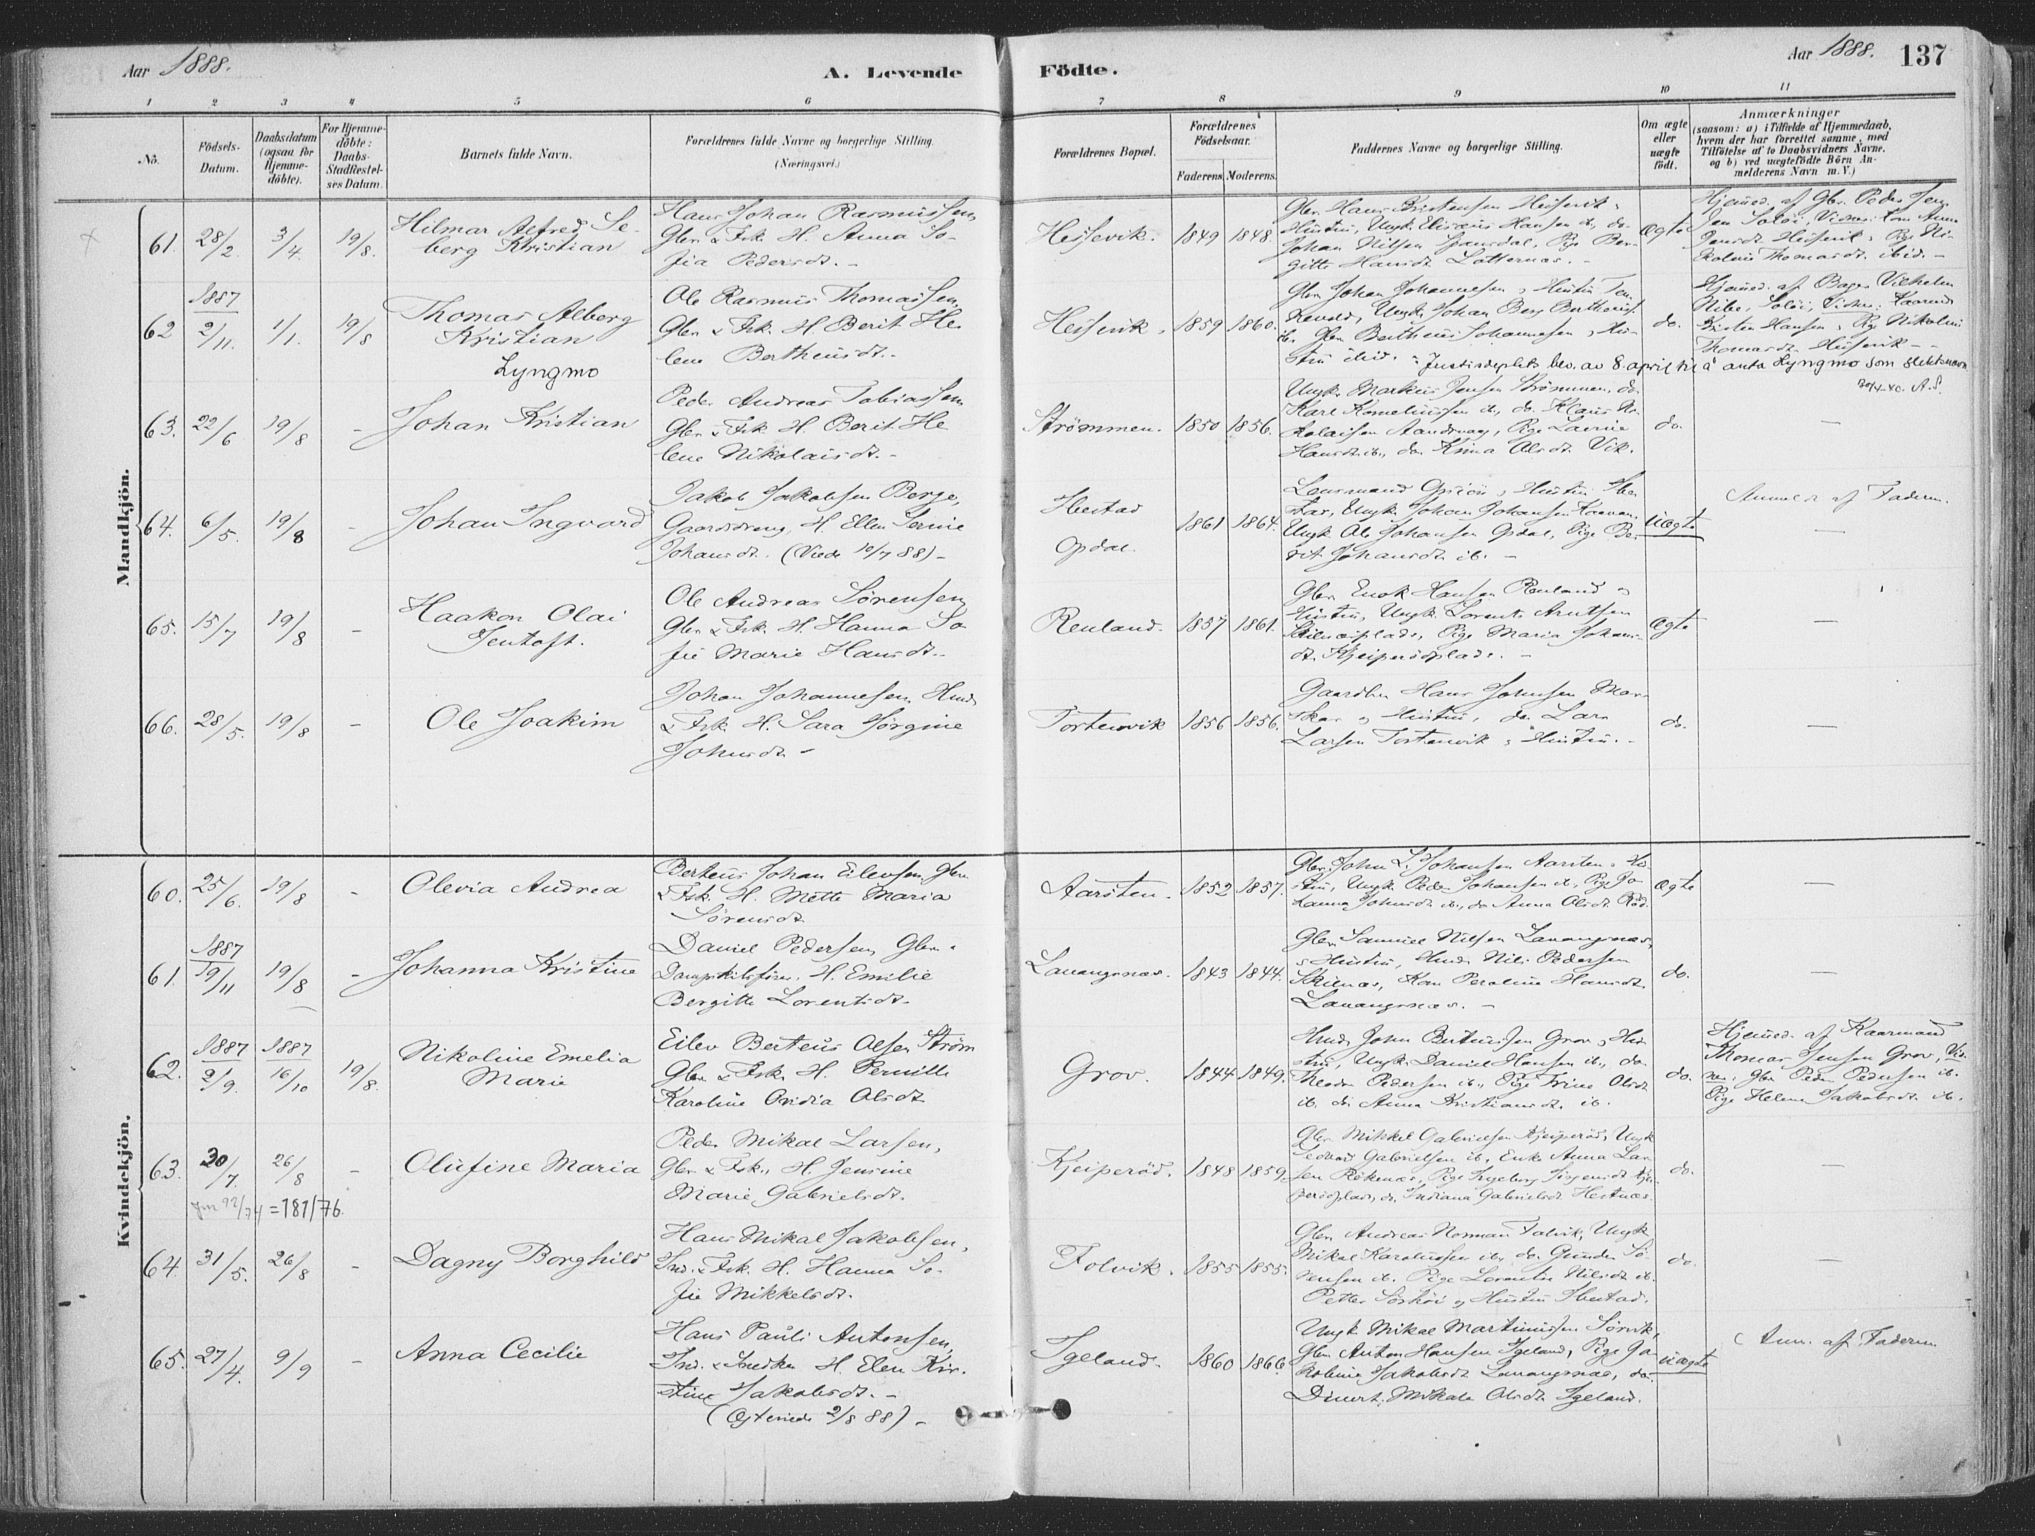 Aar 1888.
A. Levende
Födte.
Aar 1888. 137
1 2 3 4 5 6 7 8 9 10 11
No.
Födsels-Datum.
Daabsdatum (ogsaa for Hjemme-döbte).
For Hjemme-döbte: Daabs-Stadfæstel-ses Datum.
Barnets fulde Navn.
Forældrenes fulde Navne og borgerlige Stilling. (Næringsvei.)
Forældrenes Bopæl.
Forældrenes Födselsaar.
Faderens. Moderens.
Faddernes Navne og borgerlige Stilling.
Om ægte eller uægte födt.
Anmærkninger
(saasom: a) i Tilfælde af Hjemmedaab,
hvem der har forrettet samme, med
Tilföielse af to Daabsvidners Navne,
og b) ved uægtefödte Börn An-
melderens Navn m. V.)
Mandkjön.
61. 28/2 3/4. 19/8.
Hilmar Alfred Se-
berg Kristian
Hans Johan Rasmussen
Gbr. & Fsk. H. Anna So-
fia Pedersdt. -
Hessevik. 1849 1848.
Gbr. Hans Kristensen Hessevik &
Hustru, Ungk. Elisæus Hansen ib, do
Johan Nilsen Spansdal, Pige Ber-
gitte Hansdt.
Ægte
Hjemmed. af Gbr. Peder Jen-
62 1887 2/11. 1/1. 19/8
Thomas Alberg
Kristian
Lyngmo
Ole Rasmus Thomassen,
Gbr. & Fsk. H. Berit He-
lene Bertheusdt. -
Hessevik. 1859 1860.
Gbr. Johan Johannesen & Hustru
Ungk. Johan Berg Bertheus.
ib. Gbr. Bertheus Johannesen & Hu-
stru ibid. -
do.
Hjemmed. af Vilhelm
Kristen Hansen, Pige Nikoline
Thomasdt. Hessevik -
Justisdepts bev. av 8 april til å anta Lyngmo som slektsnavn
A.S.
63. 22/6 19/8 -
Johan Kristian
Peder Andreas Tobiassen
Gbr. & Fsk. H. Berit He-
lene Nikolaisdt. -
Strømmen. 1850 1856.
Ungk. Markus Jensen Strømmen, do
Karl Korneliussen ib, do. Klaus Ni-
kolaisen Aandervag, Pige Lavine
Hansdt. ib., do Anna Olsdt. Vik.
do. -
64. 6/5. 19/8 -
Johan Ingvard
Jakob Jakobsen Berge,
Gaardsdreng, H. Ellen
Johansdt. (Viede 10/7 88) -
Ibestad
Opdal.
1861 1864.
Lensmand & Hustru Ibe-
stad, Ungk. Johan Johansen
Ungk. Ole Johansen Opdal, Pige Be-
rit Johansdt. ib. -
Uægte
Anmeld. af Faderen.
-
65. 15/7 19/8 -
Haakon Olai
Jentoft.
Ole Andreas Sørensen
Gbr. & Fsk. H. Hanna So-
fie Marie Hansdt. -
Renland. 1857 1861.
Gbr. Enok Hansen Renland &
Hustru, Ungk. Lorents Arntsen
Pige Maria Johans-
dt. Kjeiperødplads. -
Ægte -
66. 28/5. 19/8 -
Ole Joakim
Johan Johannesen, Husm.
& Fsk. H. Sara Jørgine
Johnsdt. -
Tortenvik 1856 1856.
Gaardbr. Hans Johnsen Mar-
skar & Hustru, do Lars
Larsen Tortenvik & Hustru. -
do. -
Kvindekjön.
60. 25/6. 19/8 -
Olevia Andrea
Berteus Johan Eilevsen, Gbr.
& Fsk. H. Mette Maria
Sørensdt.
Aarsten. 1852 1857.
Gbr. John L. Johansen Aarsten & Hu-
stru, Ungk. Peder Johansen ib, Pige Jo-
hanna Johnsdt. ib, do Anna Olsdt. Rød.
Ægte -
61. 1887 19/11 19/8 -
Johanna Kristine
Daniel Pedersen, Gbr. &
Dampskibsfører, H. Emilie
Bergitte Lorentsdt. -
Lavangsnæs. 1843 1844.
Gbr. Samuel Nilsen Lavangsnæs,
& Hustru, Husm. Nils Pedersen
Skilnæs, Kone Peroline Hansdt.
Lavangsnæs. -
do. -
62. 1887 2/9. 1887 16/10 19/8.
Nikoline Emelia
Marie
Eilev Berteus Olsen Strøm
Gbr. & Fsk. H. Pernille
Karoline Ovidia Olsdt.
Grov. 1844 1849.
Husm. John Berteussen Grov & Hu-
stru, Ungk. Daniel Hansen ib, do
Theodor Pedersen ib., Pige Trine Olsdt
ib. do Anna Kristiansdt. ib.
do.
Hjemmed. af Kaarmand
Thomas Jensen Grov, Vid-
ner: Gbr. Peder Pedersen ib.
Pige Helena Jakobsdt. ib.
63. 30/7. 26/8 -
=181/76.
Olufine Maria
Peder Mikal Larsen,
Gbr. & Fsk., H. Jensine
Marie Gabrielsdt.
Kjeiperød. 1848 1859.
Gbr. Mikkel Gabrielsen Kjeiperød, Ungk
Edvard Gabrielsen ib, Enke Anna Lar-
sen Røkenæs, Pige Ingeborg Jørgensdt Kjei-
perødplads, do. Indiana Gabrielsdt Hestnæs.
do. -
64. 31/5. 26/8 -
Dagny Borghild
Hans Mikal Jakobsen,
Ind. & Fsk. H. Hanna So-
fie Mikkelsdt.
Folvik. 1855 1855.
Gbr. Andreas Norman Folvik, Ungk
Mikal Karolussen ib, do. Gunder Sø-
rensen ib. Pige Lorentse Nilsdt ib.
Petter & Hustru Ibestad.
do. -
65. 27/4. 9/9 -
Anna Cecilie
Hans Pauli Antonsen,
Ind. & Snedker H. Elen Kir-
stine Jakobsdt. -
(Ægteviede 2/8 88) -
Igeland. 1860 1866.
Ungk. Mikal Martinussen Sørvik,
Gbr. Anton Hansen Igeland, Pige Ja-
kobine Jakobsdt Lavangsnæs, do.
Dinert. Mikala Olsdt Igeland.
uægte
Anm. af Faderen